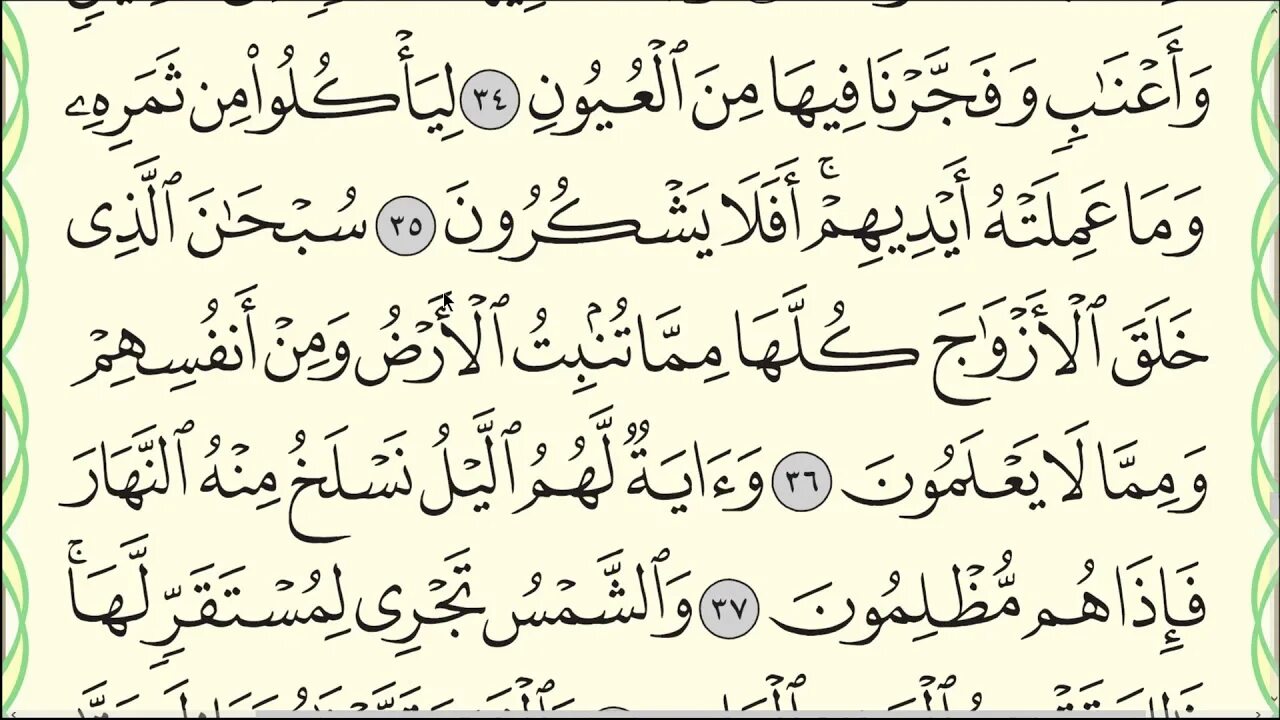 وَأَعْنَٰبٍ وَفَجَّرْنَا فِيهَا مِنَ ٱلْعُيُونِ ٣٤ لِيَأْكُلُوا۟ مِن ثَمَرِهِۦ
وَمَا عَمِلَتْهُ أَيْدِيهِمْ ۚ أَفَلَا يَشْكُرُونَ ٣٥ سُبْحَٰنَ ٱلَّذِى
خَلَقَ ٱلْأَزْوَٰجَ كُلَّهَا مِمَّا تُنۢبِتُ ٱلْأَرْضُ وَمِنْ أَنفُسِهِمْ
وَمِمَّا لَا يَعْلَمُونَ ٣٦ وَءَايَةٌ لَّهُمُ ٱلَّيْلُ نَسْلَخُ مِنْهُ ٱلنَّهَارَ
فَإِذَا هُم مُّظْلِمُونَ ٣٧ وَٱلشَّمْسُ تَجْرِى لِمُسْتَقَرٍّ لَّهَا ۚ